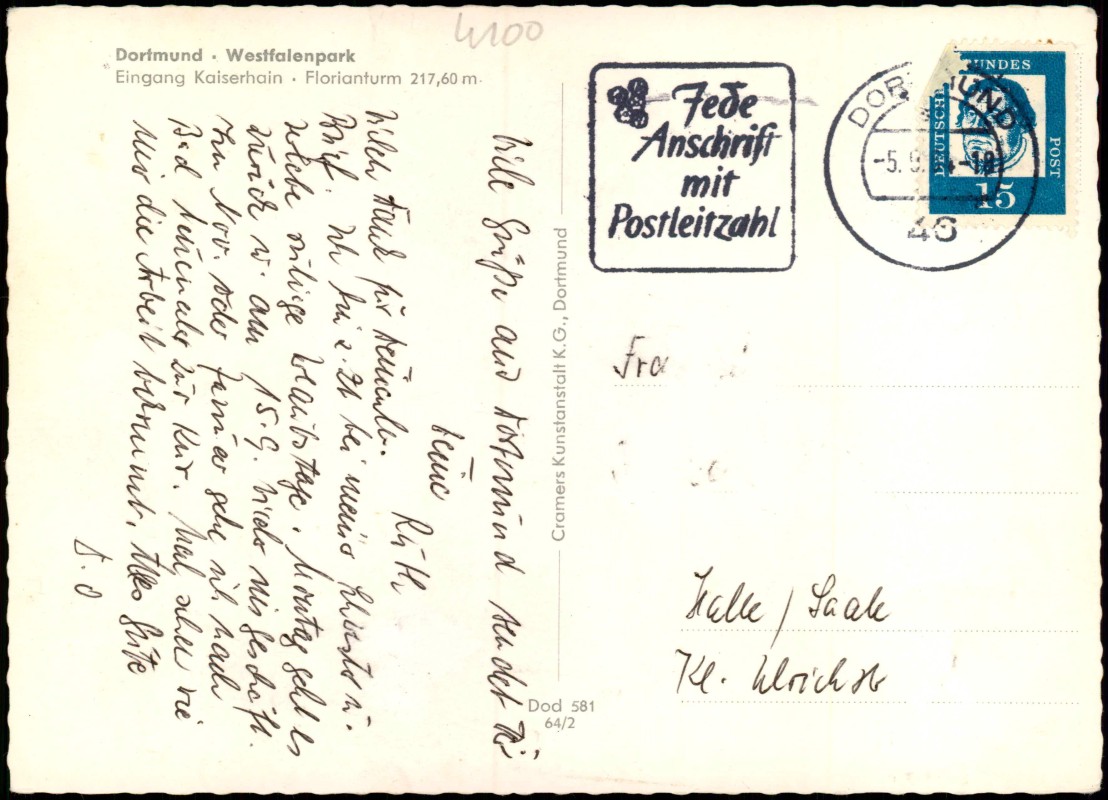 4100
Dortmund · Westfalenpark
Eingang Kaiserhain · Florianturm 217,60 m
Jede
Anschrift
mit
Postleitzahl
DORTMUND
-5.9. 4-18
46
DEUTSCHE BUNDESPOST
15
Viele Grüße aus Dortmund sendet Dir
Deine Ruth
Vielen Dank für Deinen lb.
Brief. Ich bin z. Zt bei meiner Schwester u.
ruhige Urlaubstage. Montag geht es
zurück u. am 15.9. wieder ins Geschäft.
Im Nov. oder Januar gehe ich nach
Bad zur Kur. Mal sehen wie
mir die Arbeit bekommt. Alles Gute
D. O
Cramers Kunstanstalt K.G., Dortmund
Dod 581
64/2
Fra
Halle / Saale
Kl. Ulrichstr